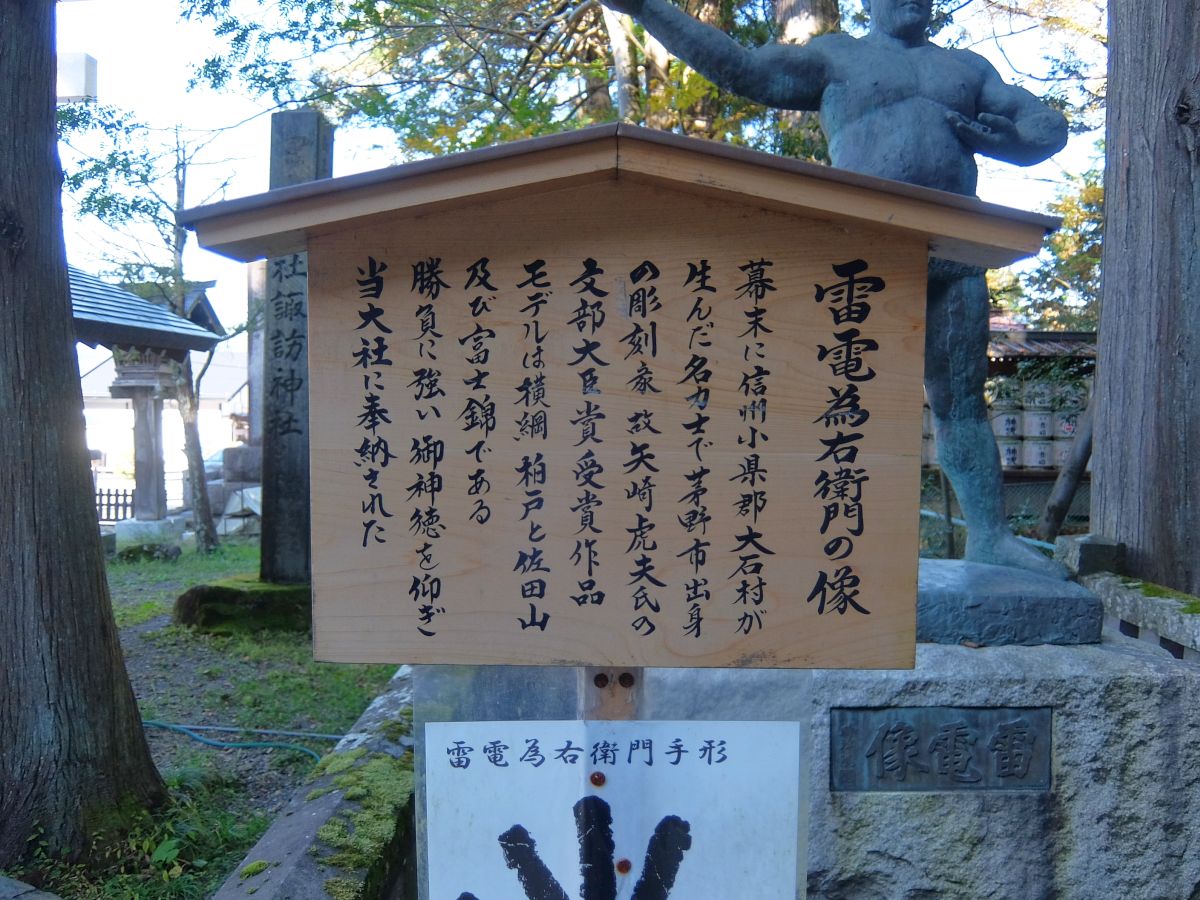 雷電為右衛門の像
幕末に信州小県郡大石村が
生んだ名力士で茅野市出身
の彫刻家 故矢崎虎夫氏の
文部大臣賞受賞作品
モデルは横綱 柏戸と佐田山
及び富士錦である
勝負に強い御神徳を仰ぎ
当大社に奉納された
社諏訪神社
雷電為右衛門手形
雷電像